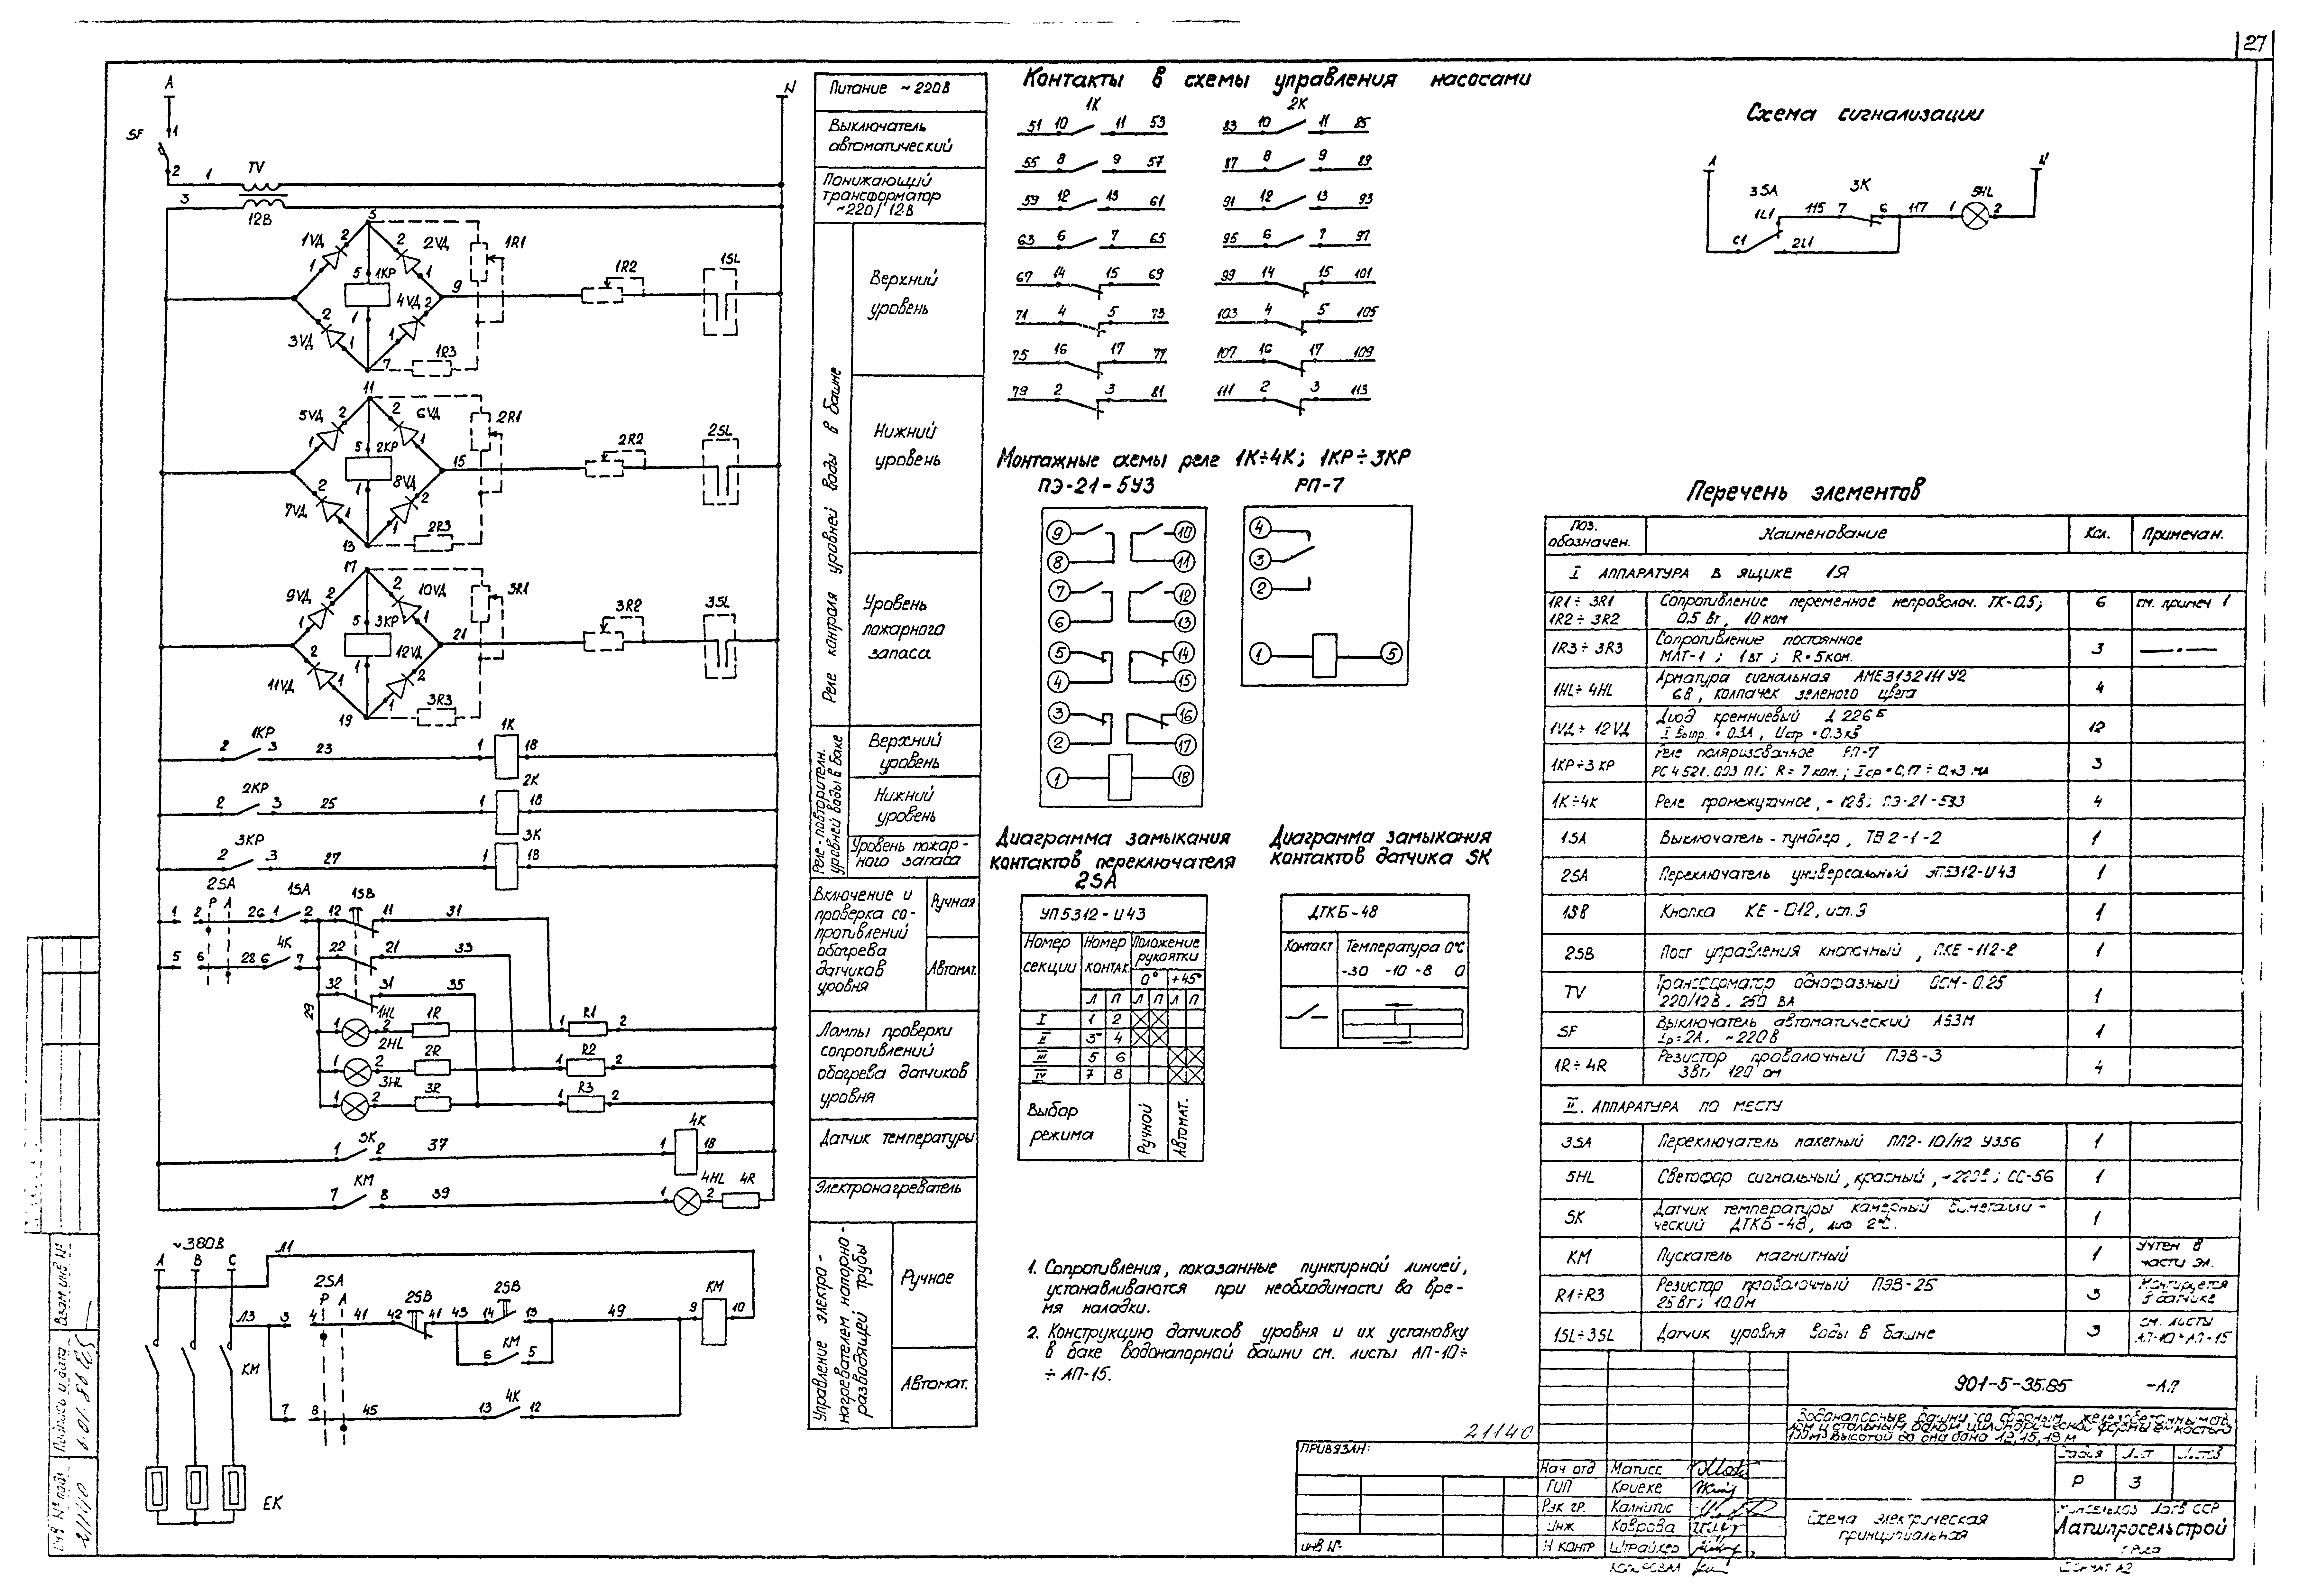 27
А
N
SF
1
2
1
TV
3
12В
5
1VД
2VД
1R1
1КР
9
1R2
1SL
4VД
3VД
7
1R3
11
5VД
6VД
2R1
2КР
15
2R2
2SL
8VД
7VД
13
2R3
17
9VД
10VД
3R1
3КР
21
3R2
3SL
12VД
11VД
19
3R3
1КР
2
3
23
1
1К
18
2КР
2
3
25
1
2К
18
3КР
2
3
27
1
3К
18
2SA
1SA
1SB
Р А
1
2
26
1
2
12
11
31
5
6
28
6
4К
7
22
21
33
32
31
35
29
1HL
1
2
1R
1
R1
2
2HL
1
2
2R
1
R2
2
3HL
1
2
3R
1
R3
2
SK
1
2
37
1
4К
18
КМ
7
8
39
1
4HL
2
4R
~380В
А В С
Л1
2SA
Р А
2SB
2SB
КМ
Л3
3
4
41
42
41
43
14
13
49
9
10
КМ
6
5
КМ
7
8
45
13
4К
12
ЕК
Питание ~220В
Выключатель
автоматический
Понижающий
трансформатор
~220/12В
Реле контроля уровней воды в башне
Верхний
уровень
Нижний
уровень
Уровень
пожарного
запаса
Реле-повторители.
уровней воды в баке
Верхний
уровень
Нижний
уровень
Уровень пожар-
ного запаса
Включение и
проверка со-
противлений
обогрева
датчиков
уровня
Ручная
Автомат.
Лампы проверки
сопротивлений
обогрева датчиков
уровня
Датчик температуры
Электронагреватель
Управление электро-
нагревателем напорно-
разводящей трубы
Ручное
Автомат.
Контакты в схемы управления насосами
1К
2К
51 10 11 53
83 10 11 85
55 8 9 57
87 8 9 89
59 12 13 61
91 12 13 93
63 6 7 65
95 6 7 97
67 14 15 69
99 14 15 101
71 4 5 73
103 4 5 105
75 16 17 77
107 16 17 109
79 2 3 81
111 2 3 113
Монтажные схемы реле 1К÷4К; 1КР÷3КР
ПЭ-21-5У3
РП-7
9 10
8 11
7 12
6 13
5 14
4 15
3 16
2 17
1 18
4
3
2
1 5
Диаграмма замыкания
контактов переключателя
2SA
УП5312-И43
Номер
секции
Номер
контак.
Положение
рукоятки
0° +45°
Л П Л П Л П
I 1 2
II 3 4
III 5 6
IV 7 8
Выбор
режима
Ручной
Автомат.
Диаграмма замыкания
контактов датчика SK
ДТКБ-48
Контакт
Температура 0°С
-30 -10 -8 0
1. Сопротивления, показанные пунктирной линией,
устанавливаются при необходимости во вре-
мя наладки.
2. Конструкцию датчиков уровня и их установку
в баке водонапорной башни см. листы АП-10÷
÷ АП-15.
Схема сигнализации
А
3SA
3К
5HL
1L1
115
7
6
117
1
2
С1
2L1
Перечень элементов
Поз.
обозначен.
Наименование
Кол.
Примечан.
I АППАРАТУРА В ЯЩИКЕ 1Я
1R1÷3R1
1R2÷3R2
Сопротивление переменное непроволоч. ТК-0,5;
0.5 Вт, 10 ком
6
см. примеч 1
1R3÷3R3
Сопротивление постоянное
МЛТ-1; 1вт; R=5ком.
3
1HL÷4HL
Арматура сигнальная
6В, колпачек зеленого цвета
4
1VД÷12VД
Диод кремниевый Д226Б
I выпр. = 0.3А,
12
1КР÷3КР
Реле поляризованное РП-7
РС4521.003 П1; R=7ком.;
3
1К÷4К
Реле промежуточное, ~12В; ПЭ-21-5У3
4
1SA
Выключатель-тумблер, ТВ2-1-2
1
2SA
Переключатель универсальный
1
1SB
Кнопка КЕ-012, исп.9
1
2SB
Пост управления кнопочный, ПКЕ-112-2
1
TV
Трансформатор однофазный ОСМ-0.25
220/12В. 250 ВА
1
SF
Выключатель автоматический А53М
Iр=2А. ~220В
1
1R÷4R
Резистор проволочный ПЭВ-3
3Вт; 120 ом
4
II. АППАРАТУРА ПО МЕСТУ
3SA
Переключатель пакетный
1
5HL
Светофор сигнальный, красный, ~220В; СС-56
1
SK
Датчик температуры камерный биметалли-
ческий ДТКБ-48,
1
КМ
Пускатель магнитный
1
Учтен в
части эл.
R1÷R3
Резистор проволочный ПЭВ-25
25Вт;
3
Монтируется
в датчике
1SL÷3SL
Датчик уровня воды в башне
3
см. листы
АП-10÷АП-15
901-5-35.85 -АП
Водонапорные башни со сборным железобетонным
Высотой до дна бака 12,15,18 м
Стадия Лист Листов
Р 3
Схема электрическая
принципиальная
Латгипросельстрой
г. Рига
21140
ПРИВЯЗАН:
ИНВ №
Нач отд Матисс
ГИП Криеке
Рук гр. Калнитис
Инж Коврова
Н контр Штрайхер
Копировал
Формат А2
Взам инв №
Подпись и дата
Инв № подл
21140